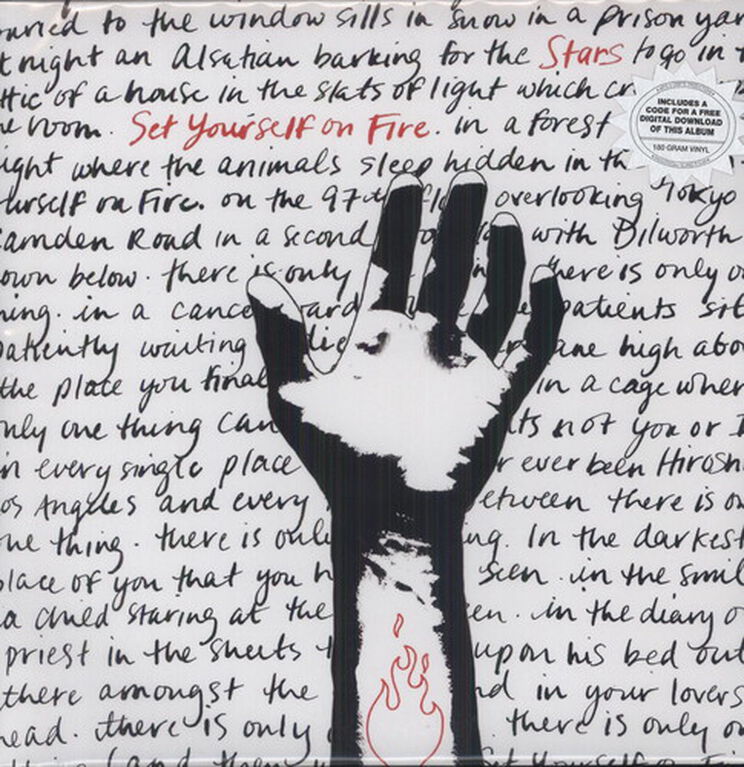 to the window sills in snow in a prison
night an Alsatian barking for the Stars to go in
of a house in the slats of light which
room. Set Yourself on Fire. in a forest
where the animals sleep hidden in
on Fire. on the 97th overlooking Tokyo
Camden Road in a second with Dilworth
below. there is only there is only
in a patients
patiently waiting high
the place you in a cage
only one thing can its not you or
in every single place ever been
Angeles and every between there is
thing. there is only In the darkest
place of you that you seen. in the
a child staring at the in the diary
priest in the sheets upon his bed
there amongst the in your lovers
head. there is only there is only
and then Set Yourself on
INCLUDES A
CODE FOR A FREE
DIGITAL DOWNLOAD
OF THIS ALBUM
180 GRAM VINYL